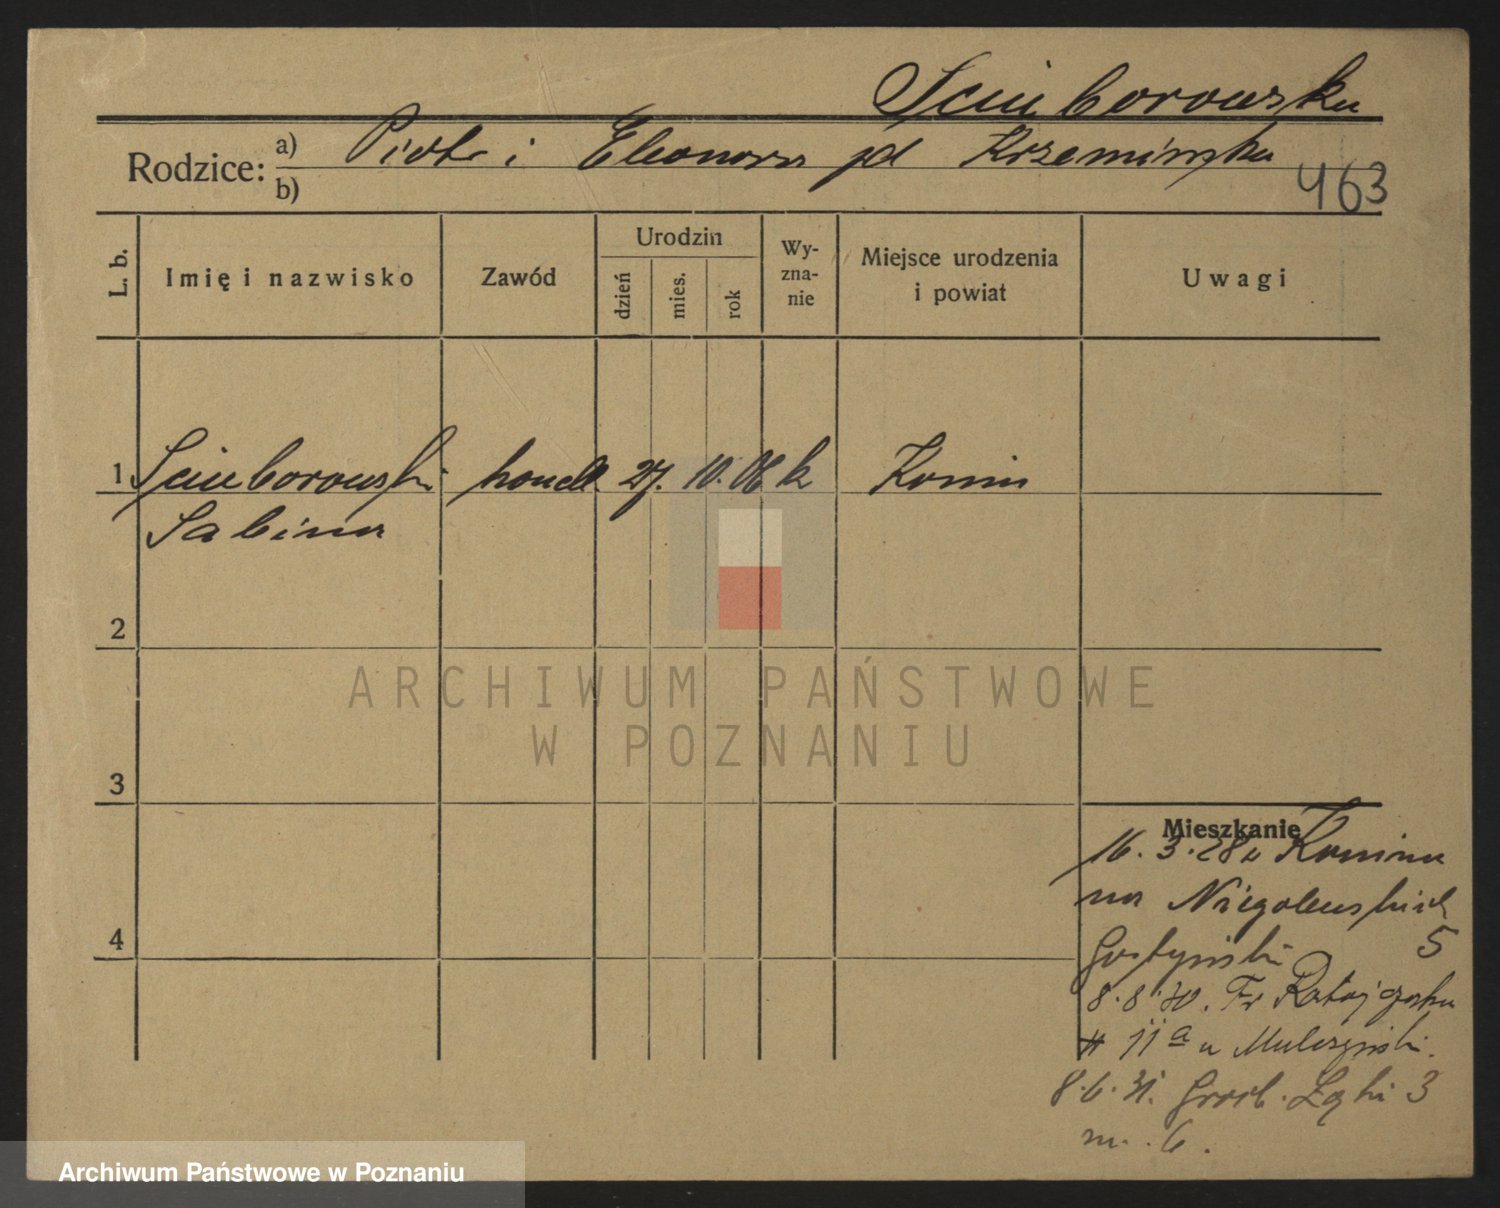 Sciuborowska
Rodzice: a) Piotr i Eleonora pd Krzemińska
b)
463
L. b. Imię i nazwisko Zawód Urodzin dzień mies. rok Wyznanie Miejsce urodzenia i powiat Uwagi
1 Sciuborowski handl. 27. 10. 06 k Konin
Sabina
2
ARCHIWUM PAŃSTWOWE
W POZNANIU
3
4
Mieszkanie
16. 3. 28 z Konina
na Niegolewskich
5
Gostyński
8. 8. 30. Fr Ratajczaka
# 11a u
8. 6. 31. Grob. Łąki 3
m. 6.
Archiwum Państwowe w Poznaniu